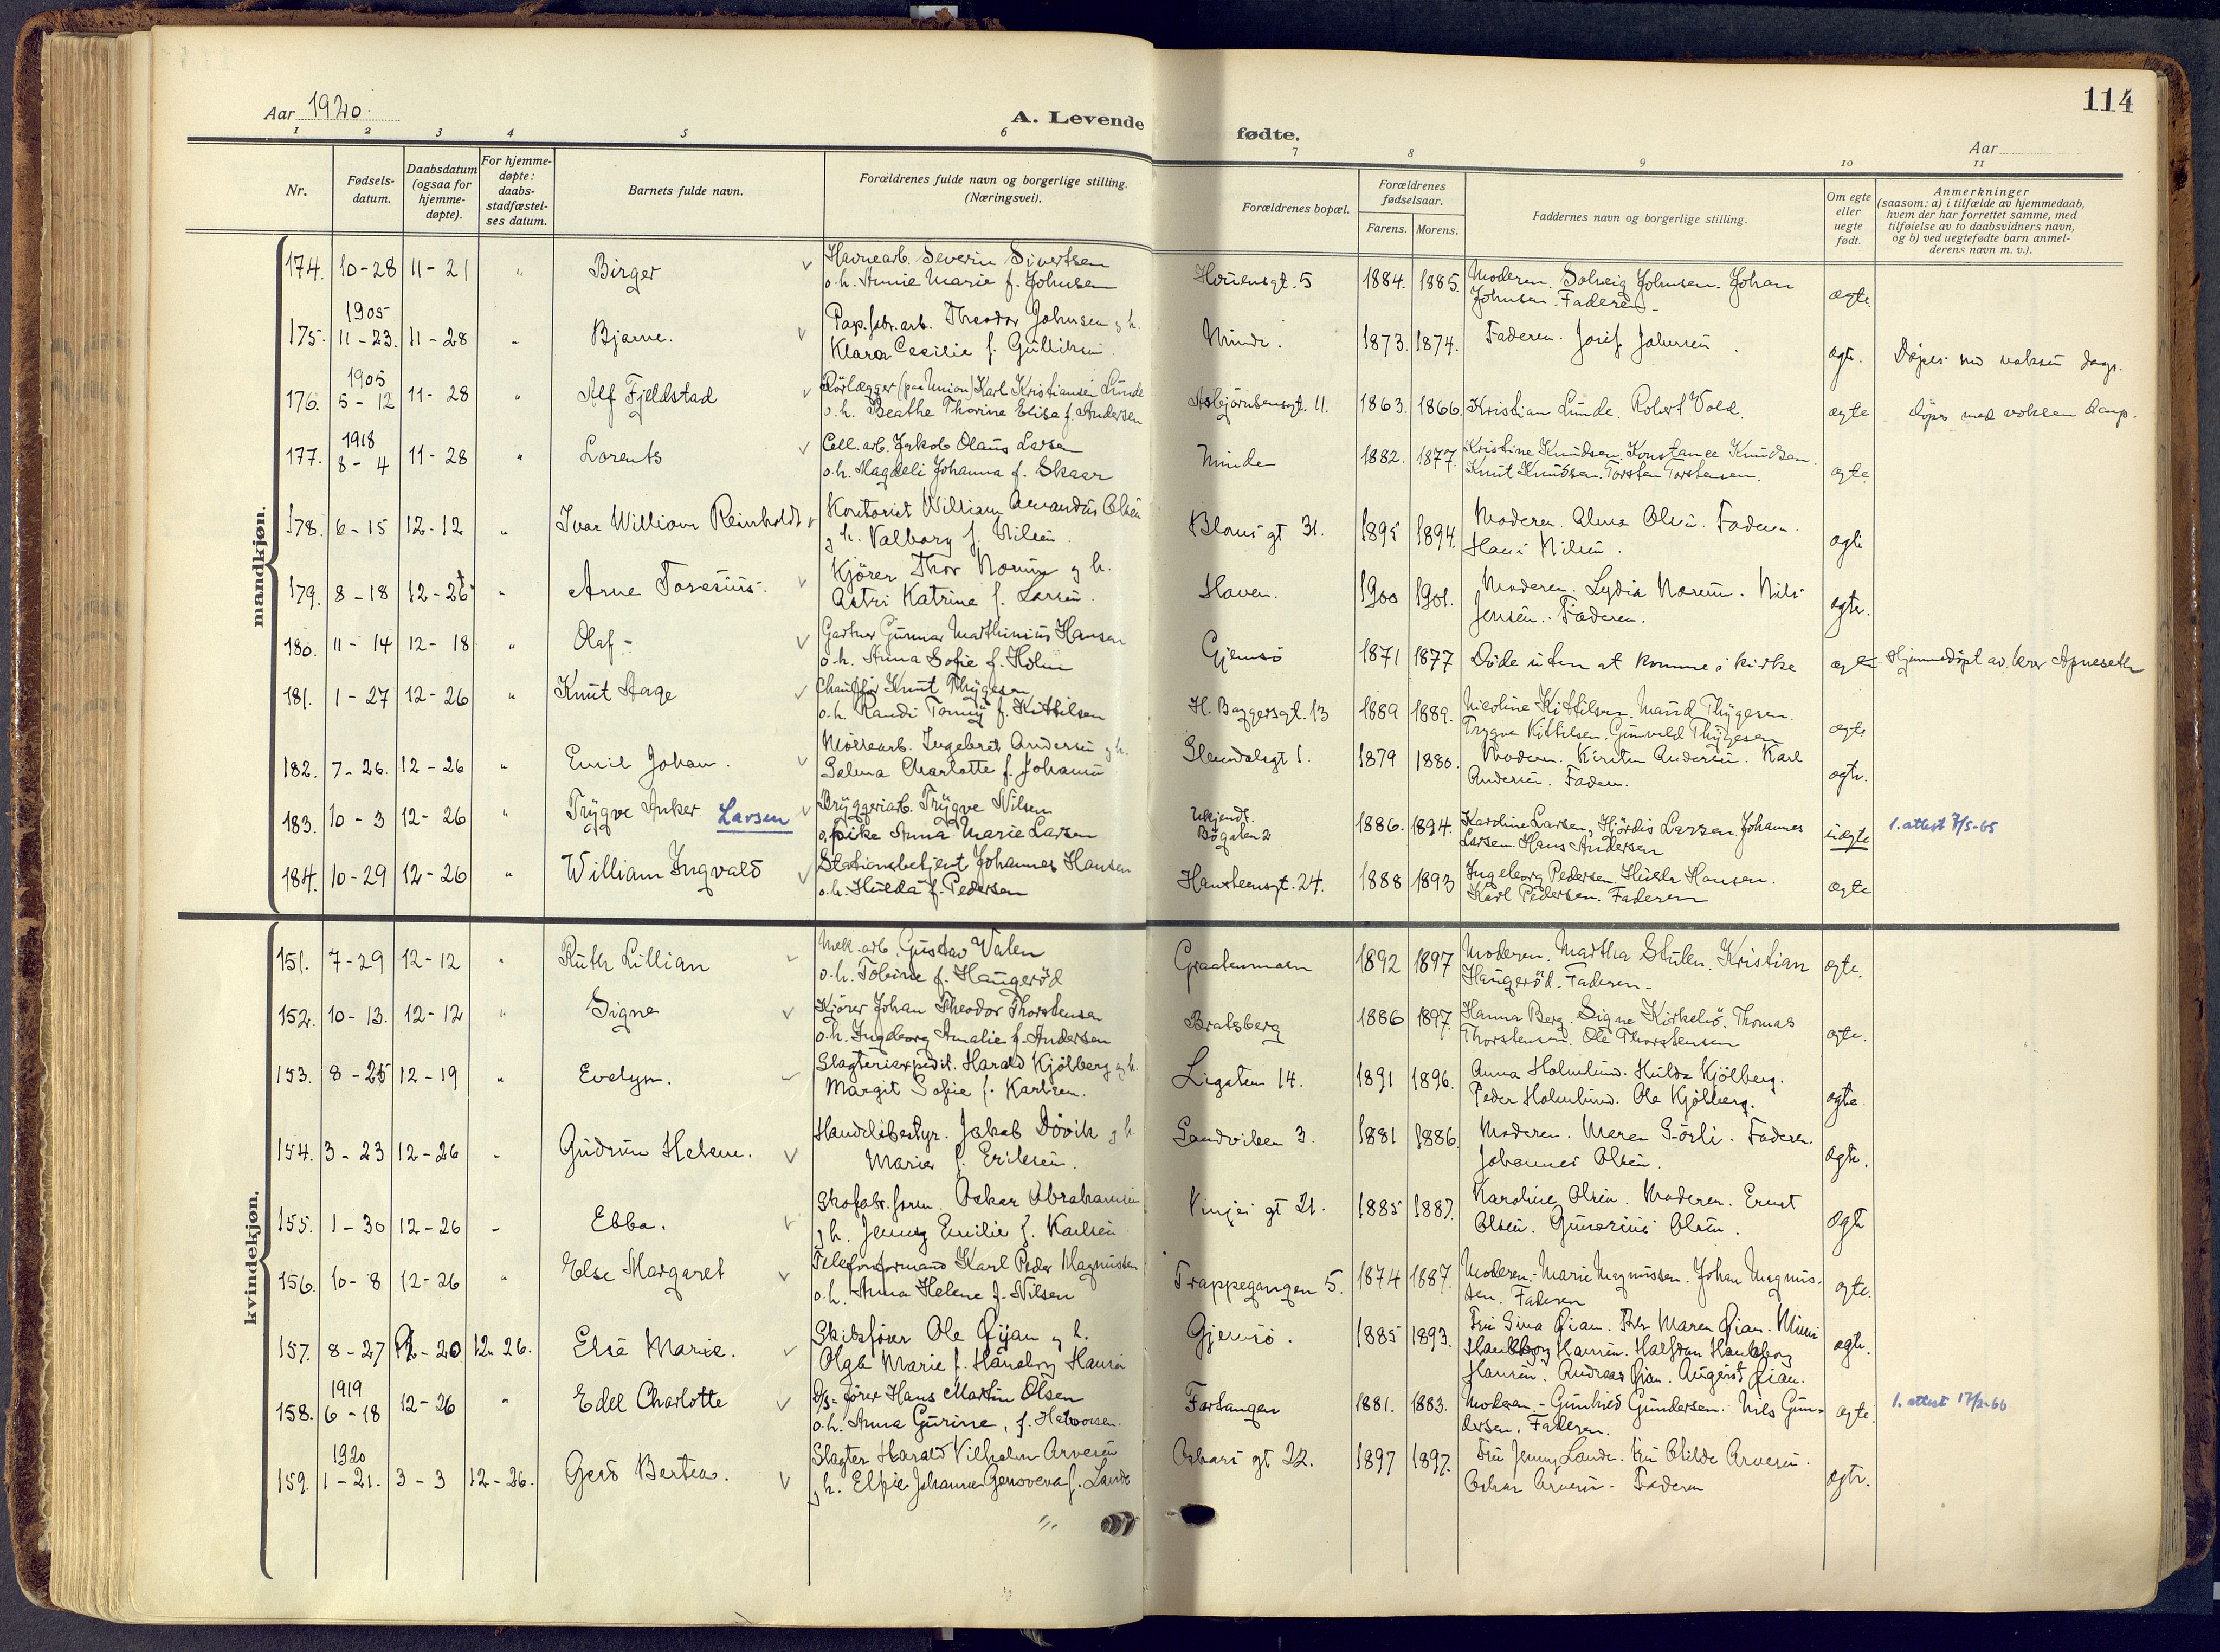 114
Aar 1920.
A. Levende fødte.
Aar
1 2 3 4 5 6 7 8 9 10 11
Nr.
Fødsels-
datum.
Daabsdatum
(ogsaa for
hjemme-
døpte).
For hjemme-
døpte:
daabs-
stadfæstel-
ses datum.
Barnets fulde navn.
Forældrenes fulde navn og borgerlige stilling.
(Næringsvei).
Forældrenes bopæl.
Forældrenes
fødselsaar.
Farens. Morens.
Faddernes navn og borgerlige stilling.
Om egte
eller
uegte
født.
Anmerkninger
(saasom: a) i tilfælde av hjemmedaab,
hvem der har forrettet samme, med
tilføielse av to daabsvidners navn,
og b) ved uegtefødte barn anmel-
derens navn m. v.).
mandkjøn.
174. 10-28 11-21 " Birger
Havnearb. Severin Sivertsen
o.h. Annie Marie f. Johnsen
1884. 1885. Moderen. Solveig Johnsen. Johan
Johnsen. Faderen.
ægte.
1905
175. 11-23. 11-28 " Bjarne.
Pap.fabr.arb. Theodor Johnsen og h.
Klara Cecilie f. Gulliksen.
Minde. 1873. 1874. Faderen. Josef Johnsen.
ægte. Døpes med voksen daap.
1905
176. 5-12 11-28 " Alf Fjeldstad
Rörlægger (paa Union) Karl Kristiansen Lunde
o.h. Beathe Thorine Elise f. Andersen
Asbjørnsensgt. 11. 1863. 1866. Kristian Lunde. Robert Vold.
ægte døpes med voksen daap.
1918
177. 8-4 11-28 " Lorents
Cell. arb. Jakob Olaus Larsen
o.h. Magdeli Johanna f. Skaar
Minde 1882. 1877. Kristine Knudsen. Konstance Knudsen.
Knut Knudsen. Torsten Torstensen.
ægte
178. 6-15 12-12 " Ivar William Reinholdt
Kontorist William Amandus Olsen
og h. Valborg f. Nilsen.
Bloms gt 31. 1895 1894. Moderen. Alma Olsen. Faderen.
Hans Nilsen.
ægte
179. 8-18 12-26 " Arne Torenius.
Kjörer Thor Norum og h.
Astri Katrine f. Larsen.
Haven. 1900 1901. Moderen. Lydia Norum. Nils
Jensen. Faderen.
ægte.
180. 11-14 12-18 " Olaf
Gartner Gunnar Marthinius Hansen
o.h. Anna Sofie f. Holm
Gjemsö 1871 1877 Döde uten at komme i kirke
ægte Hjemmedöpt av
181. 1-27 12-26 " Knut Aage
Chauffør Knut Thygesen
o.h. Randi Tomy f. Kittilsen
H. Baggersgt. 13 1889 1889. Nicoline Kittilsen. Maud Thygesen.
Trygve Kittilsen. Gunvald Thygesen
ægte
182. 7-26. 12-26 " Emil Johan.
Möllearb. Ingebret Andersen og h.
Selma Charlotte f. Johansen
1879 1880. Moderen. Kirsten Andersen. Karl
Andersen. Faderen.
ægte.
183. 10-3 12-26 " Trygve Anker Larsen
Bryggeriarb. Trygve Nilsen
o. pike Anna Marie Larsen
Ukjendt.
Bögaten 2
1886. 1894. Karoline Larsen, Hjördis Larsen. Johannes
Larsen. Hans Andersen
uægte 1. attest 7/5-65
184. 10-29 12-26 " William Ingvald
Stationsbetjent Johannes Hansen
o.h. Hulda f. Pedersen
Hansteensgt. 24. 1888 1893 Ingeborg Pedersen. Hulda Hansen.
Karl Pedersen. Faderen
ægte
kvindekjøn.
151. 7-29 12-12 " Ruth Lillian
Mek. arb. Gustav Valen
o.h. Tobine f. Haugeröd
Graatenmoen 1892 1897 Moderen. Martha Stulen. Kristian
Haugeröd. Faderen.
ægte.
152. 10-13. 12-12 " Signe
Kjörer Johan Theodor Thorstensen
o.h. Ingeborg Amalie f. Andersen
Bratsberg 1886 1897. Hanna Berg. Signe Kirkebö. Thomas
Thorstensen. Ole Thorstensen
ægte.
153. 8-25 12-19 " Evelyn.
Slagteriexpedit. Harald Kjölberg og h.
Margit Sofie f. Karlsen.
Ligaten 14. 1891 1896. Anna Holmlund. Hulda Kjölberg.
Peder Holmlund. Ole Kjölberg.
ægte.
154. 3-23 12-26 " Gudrun Helene.
Handelsbestyr. Jakob Dövik og h.
Marie f. Eriksen.
Sandviken 3. 1881 1886. Moderen. Maren Sörli. Faderen.
Johannes Olsen.
ægte.
155. 1-30 12-26 " Ebba.
Skofabr.form. Oskar Abrahamsen
og h. Jenny Emilie f. Karlsen
Vinjes gt 21. 1885 1887. Karoline Olsen. Moderen. Ernst
Olsen. Gunerius Olsen.
ægte
156. 10-8 12-26 " Else Margaret
Telefonformand Karl Peder Magnussen
o.h. Anna Helene f. Nilsen
Trappegangen 5. 1874 1887. Moderen. Marie Magnussen. Johan Magnus-
sen. Faderen
ægte.
157. 8-27 12-20 12-26. Else Marie.
Skibsfører Ole Qijan og h.
Olga Marie f. Haneborg Hansen
Gjemsö. 1885 1893. Fru Sina Qian. Maren Qian. Mimi
Hansen. Halfdan
Hansen. Andreas Qian. August Qian.
ægte.
1919
158. 6-18 12-26 " Edel Charlotte
D/s-förer Hans Martin Olsen
o.h. Anna Gurine, f. Halvorsen.
Fartangen 1881. 1883. Moderen. Gunhild Gundersen. Nils Gun-
dersen. Faderen.
ægte. 1. attest 17/2-66
1920
159. 1-21. 3-3 12-26. Gerd Bertea.
Slagter Harald Vilhelm Arvesen
og h. Elfie Johanne Genoveva f. Lande
Oskars gt 22. 1897 1897. Fru Jenny Lande. Fru Arvesen.
Oskar Arvesen. Faderen
ægte.